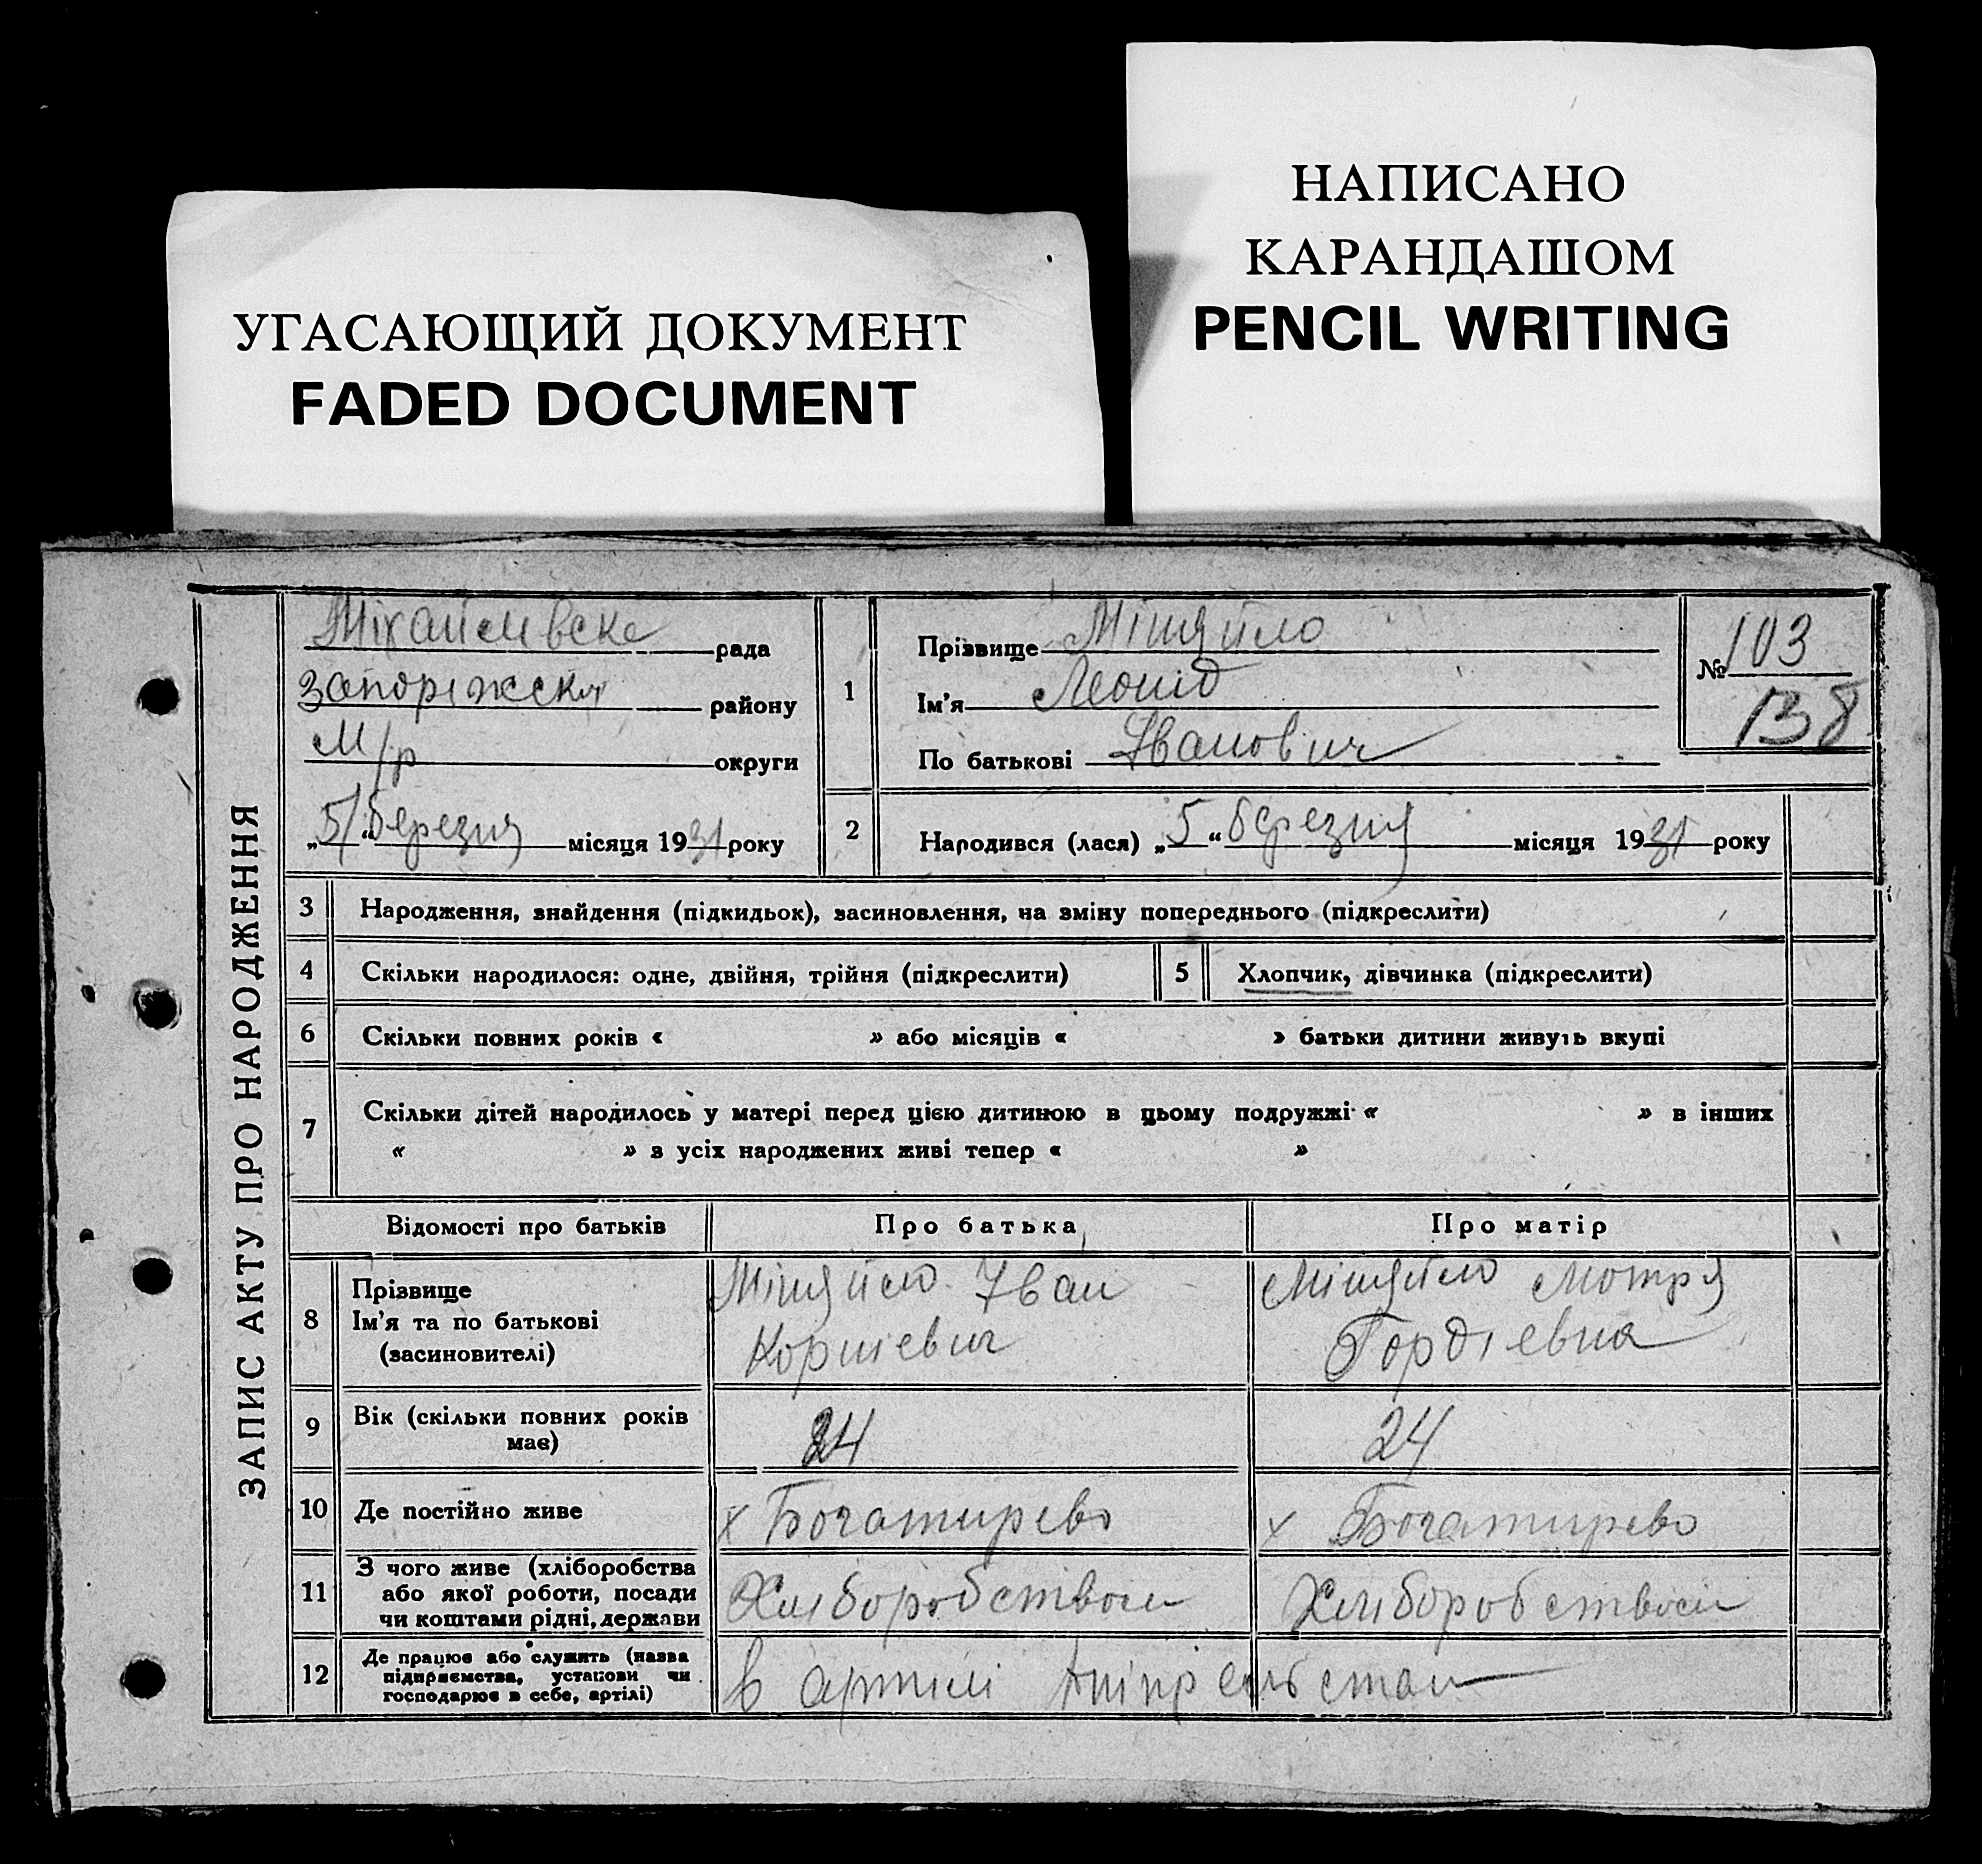 НАПИСАНО
КАРАНДАШОМ
PENCIL WRITING
УГАСАЮЩИЙ ДОКУМЕНТ
FADED DOCUMENT
ЗАПИС АКТУ ПРО НАРОДЖЕННЯ
рада
району
М/р округи
„5“ березня місяця 1931 року
1
Прізвище Міняйло
Ім'я Леонід
По батькові Іванович
№ 103
138
2 Народився (лася) „5“ березня місяця 1931 року
3 Народження, знайдення (підкидьок), засиновлення, на зміну попереднього (підкреслити)
4 Скільки народилося: одне, двійня, трійня (підкреслити) 5 Хлопчик, дівчинка (підкреслити)
6 Скільки повних років « » або місяців « » батьки дитини живуть вкупі
7 Скільки дітей народилось у матері перед цією дитиною в цьому подружжі « » в інших
« » з усіх народжених живі тепер « »
Відомості про батьків Про батька Про матір
8 Прізвище Ім'я та по батькові (засиновителі)
Міняйло Іван
Корнієвич
Міняйло Мотря
Гордієвна
9 Вік (скільки повних років має) 24 24
10 Де постійно живе х Богатирево х Богатирево
11 З чого живе (хліборобства або якої роботи, посади чи коштами рідні, держави Хліборобством Хліборобством
12 Де працює або служить (назва підприємства, установи чи господарює в себе, артілі) в артилі